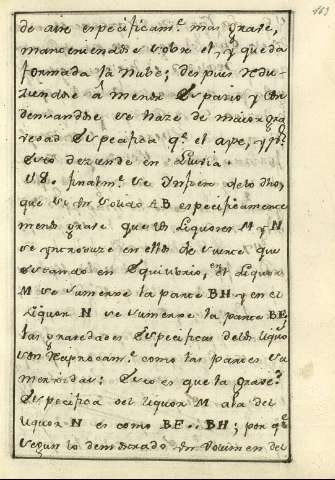 163
de aire especificam.te mas grave,
manteniendose sobre el, y queda
formada la Nube; despues redu-
ziendose â menor Espacio y con
densandose se haze de maior gra
vedad Especifica q.e el ayre, y p.r
Esso deziende en lluvia.
V8. finalm.te se Ynfiere delo dho,
que si un solido AB especificamente
menos grave que los Liquores M y N
se yntroduze en ellos de suerte que
estando en Equilibrio, en el Liquor
M se sumerxe la parte BH y en el
Liquor N se sumerxe la parte BE,
las gravedades Especificas delos liquo
son reciprocam.te como las partes su
mergidas; Esto es que la grave.d
Especifica del liquor M ala del
liquor N es como BE.. BH; por q.e
segun lo demostrado Un Volumen del